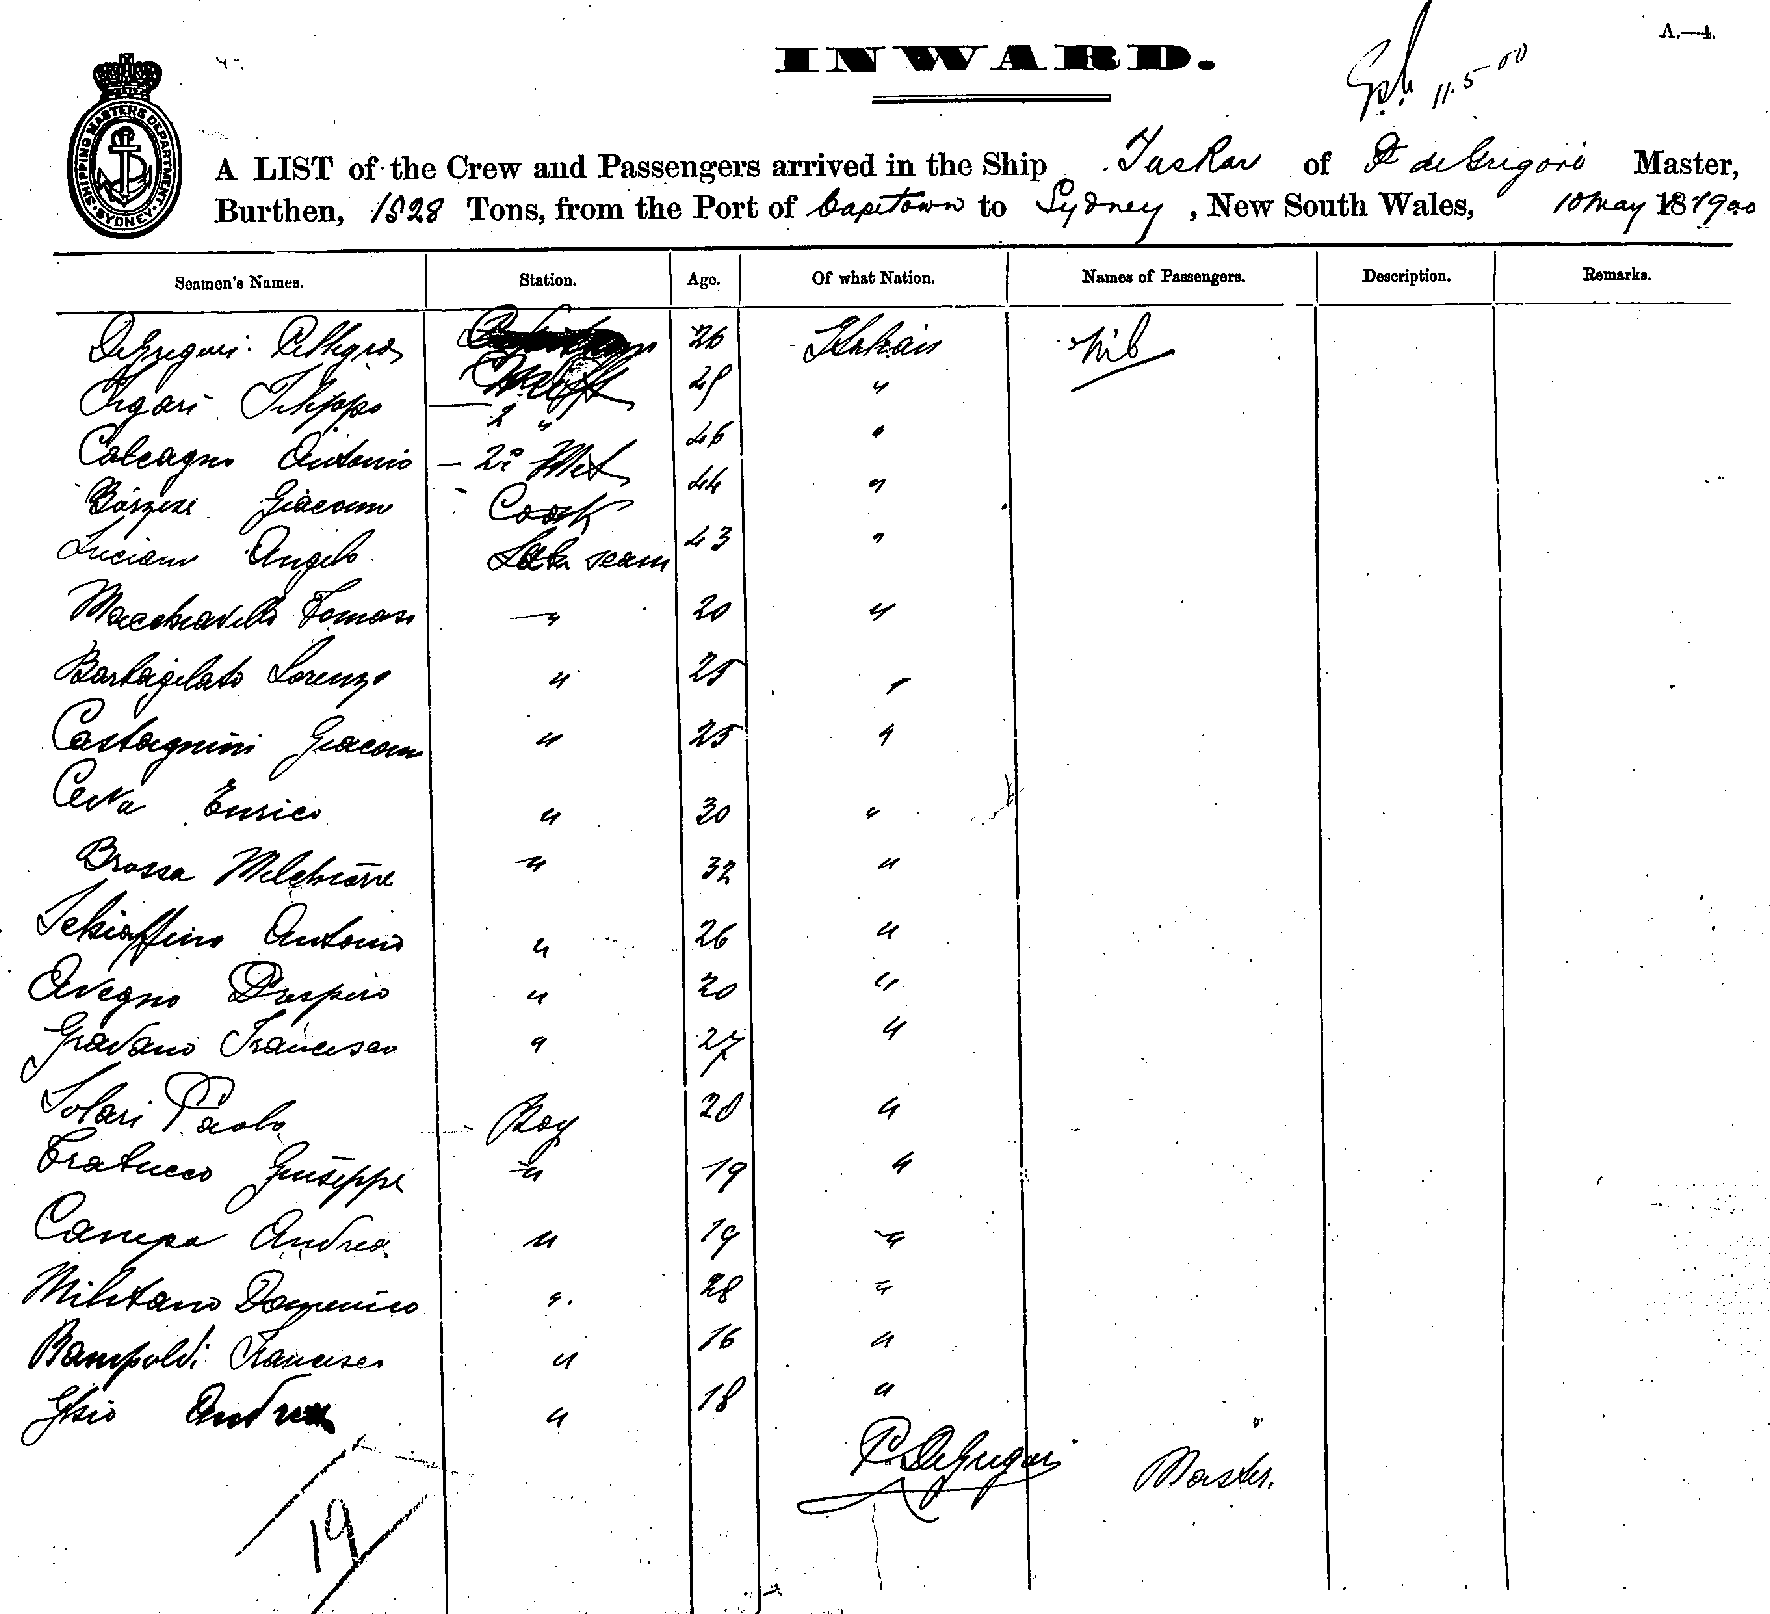 A.—4.
INWARD.
11.5.00
SHIPPING MASTERS DEPARTMENT SYDNEY
A LIST of the Crew and Passengers arrived in the Ship Taskar of P deGregori Master,
Burthen, 1528 Tons, from the Port of Capetown to Sydney, New South Wales, 10 May 181900
Seamen's Names. Station. Age. Of what Nation. Names of Passengers. Description. Remarks.
DeGregori Pellegro 26 Italian Nil
Figari Filippo 2 " "
Calcagno Antonio 2° Mat 46 "
Giacomo Cook 44 "
Luciani Angelo seam 43 "
Macchiavello Tomaso " 20 "
Bartagelata Lorenzo " 25 "
Castagnini Giacomo " 25 "
Enrico " 30 "
Brossa Melchiorre " 32 "
Schiaffino Antonio " 26 "
Avegno Prospero " 20 "
Gravano Francesco " 27 "
Solari Paolo Boy 20 "
Giuseppe " 19 "
Campo Andrea " 19 "
Militano Domenico " 28 "
Rampoldi Francesco " 16 "
Ghio Andrea " 18 "
P. DeGregori Master.
19